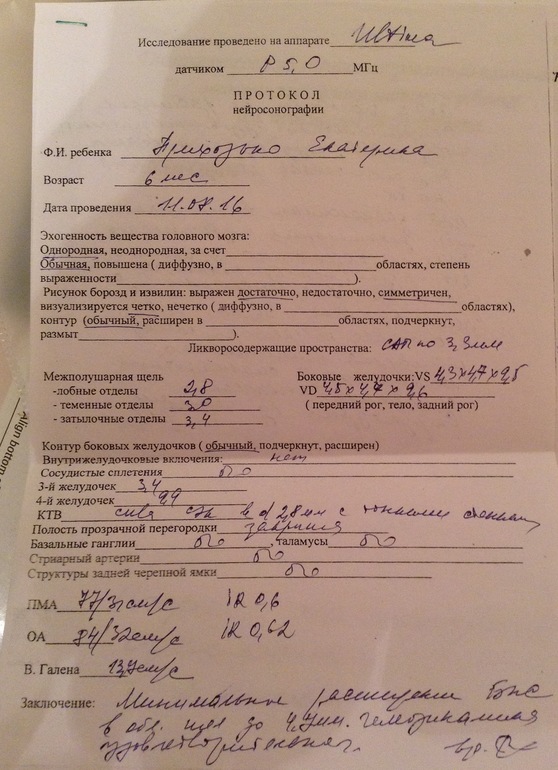 Исследование проведено на аппарате Ultima
датчиком P 5,0 МГц
ПРОТОКОЛ
нейросонографии
Ф.И. ребенка Екатерина
Возраст 6 мес
Дата проведения 11.07.16
Эхогенность вещества головного мозга:
Однородная, неоднородная, за счет
Обычная, повышена ( диффузно, в областях, степень
выраженности ).
Рисунок борозд и извилин: выражен достаточно, недостаточно, симметричен,
визуализируется четко, нечетко ( диффузно, в областях),
контур (обычный, расширен в областях, подчеркнут,
размыт ).
Ликворосодержащие пространства: САП по 3,3мм
Межполушарная щель
-лобные отделы 2,8
- теменные отделы 3,0
- затылочные отделы 3,4
Боковые желудочки: VS 4,3х4,7х9,5
VD 4,5х4,7х9,6
( передний рог, тело, задний рог)
Контур боковых желудочков ( обычный, подчеркнут, расширен)
Внутрижелудочковые включения: нет
Сосудистые сплетения б/о
3-й желудочек 3,4
4-й желудочек
КТВ слева d 2,8мм с
Полость прозрачной перегородки закрыта
Базальные ганглии б/о, таламусы б/о
Стриарный артерии б/о
Структуры задней черепной ямки б/о
ПМА 77/31см/с iR 0,6
ОА 84/32см/с iR 0,62
В. Галена 13,7см/с
Заключение: Минимальное расширение
в обл. щел до 4,7мм. гемодинамика
удовлетворительная.